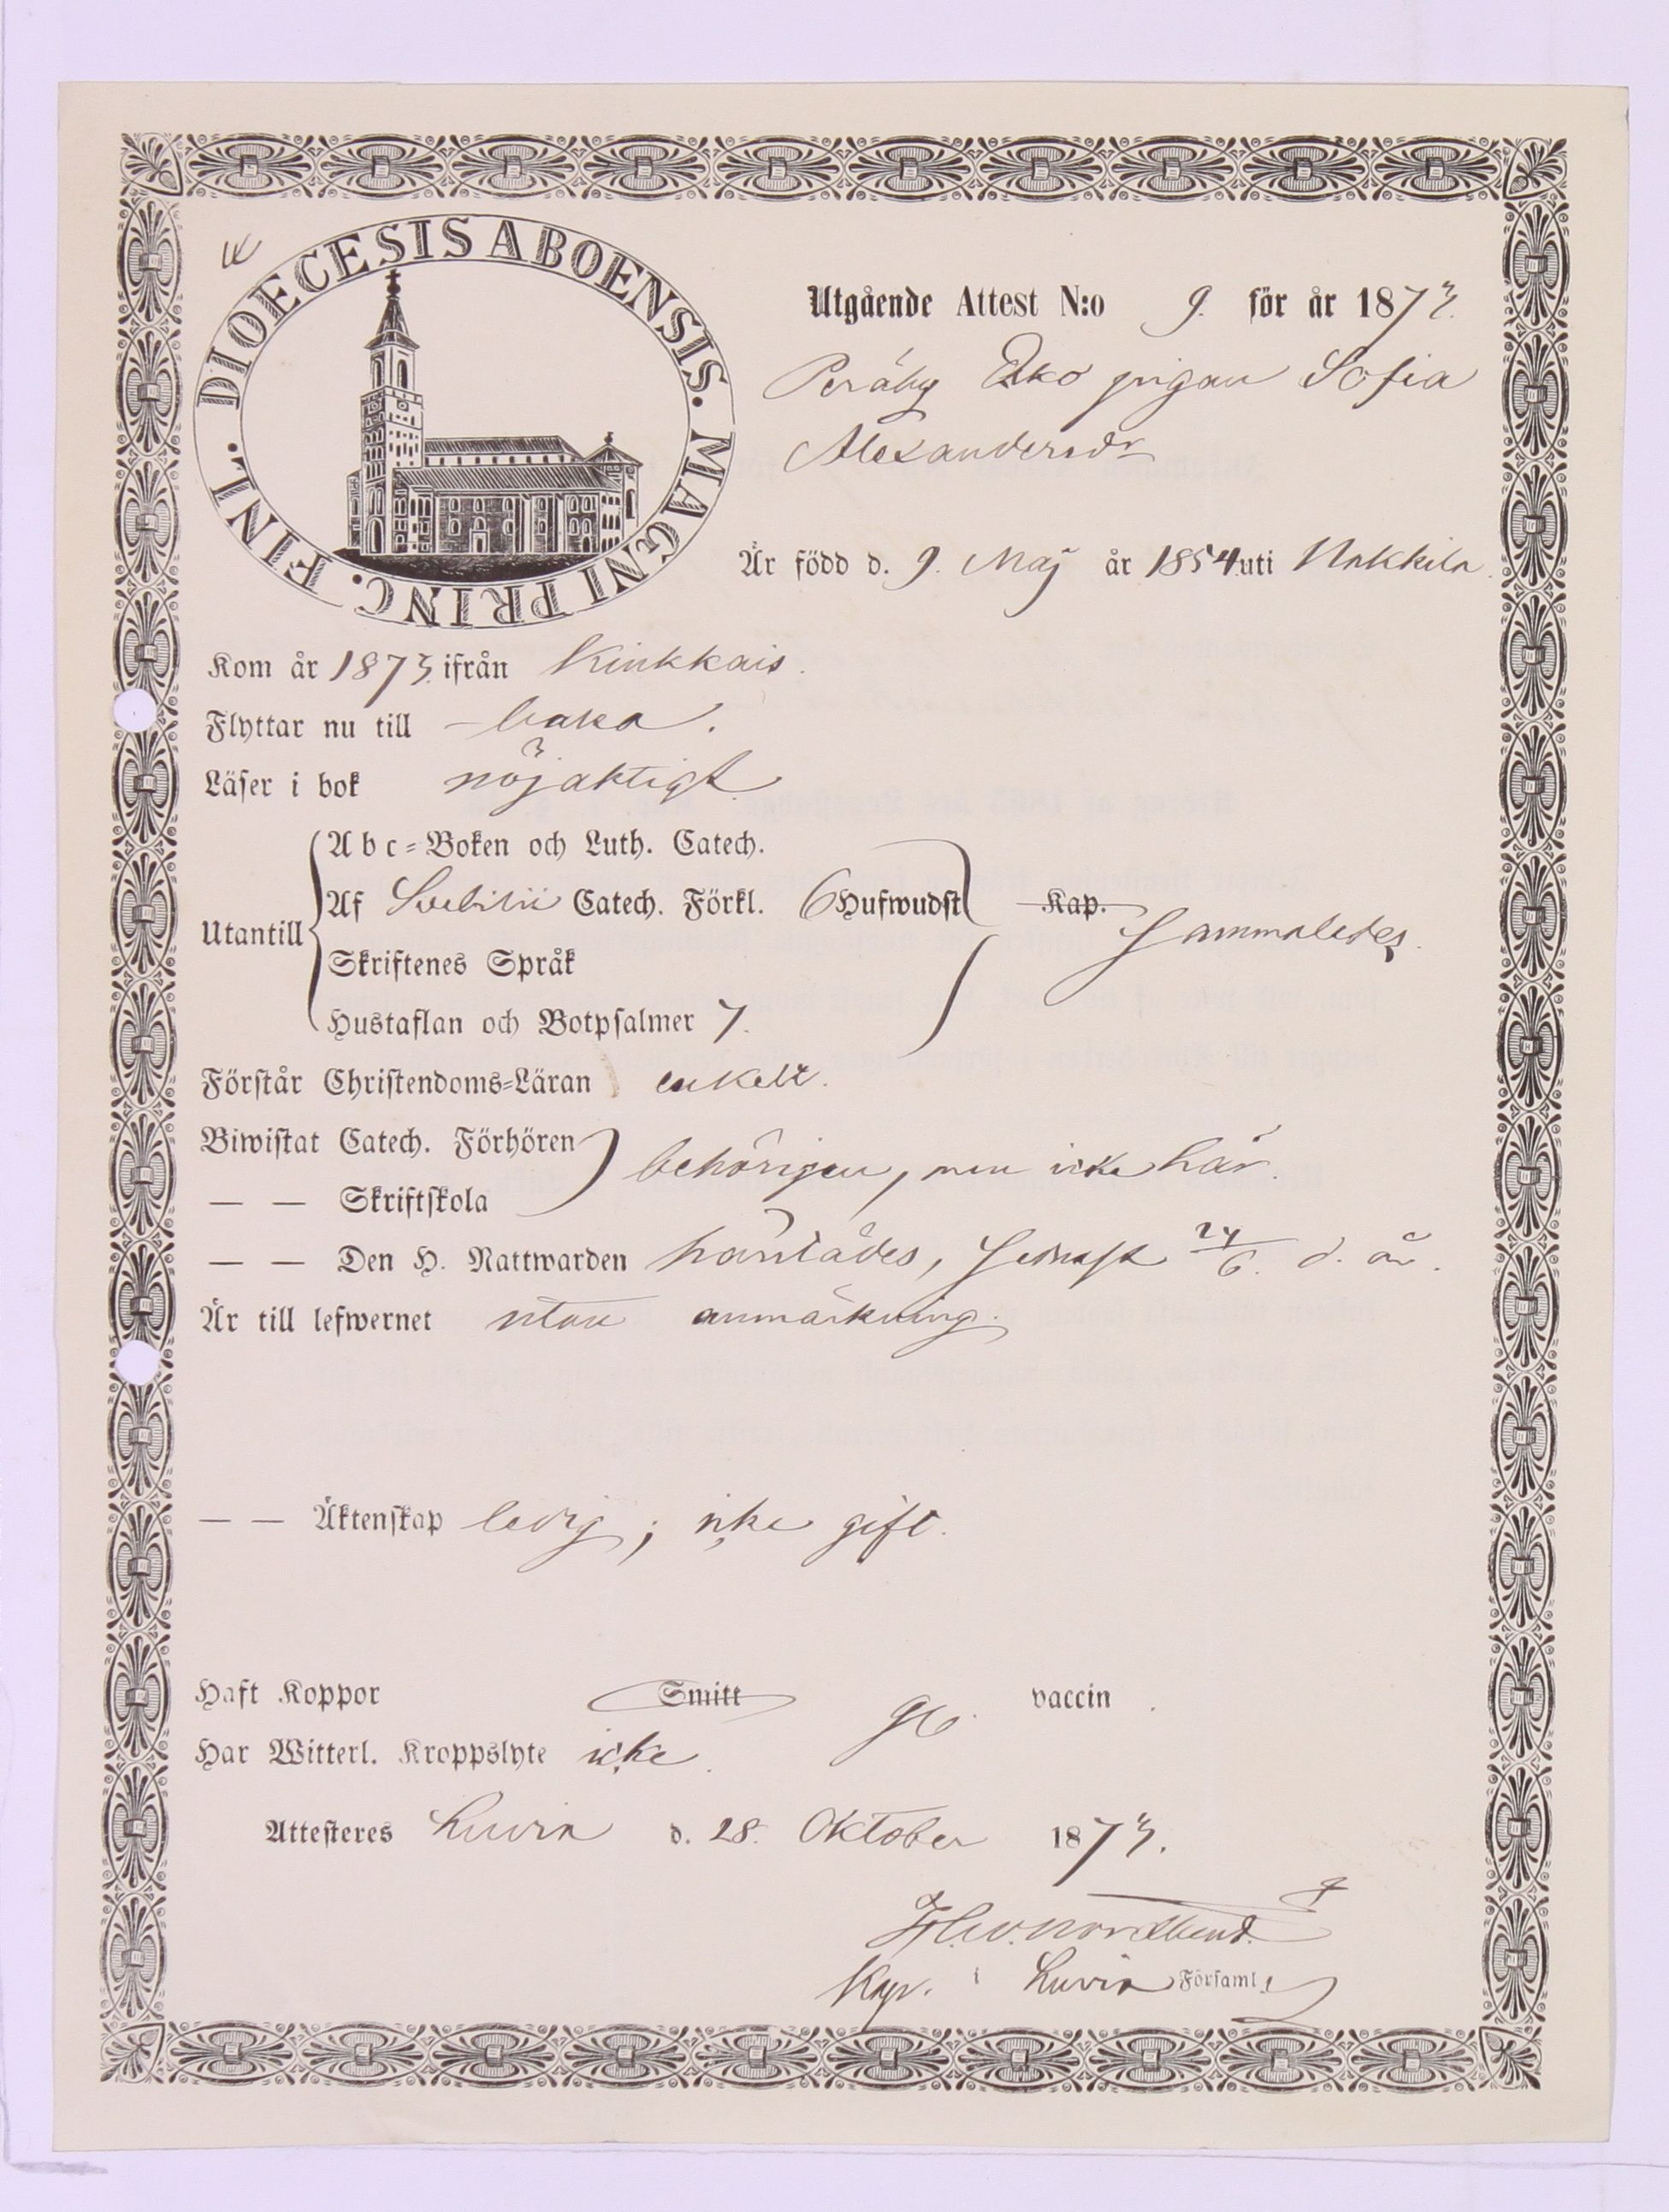 DIOECESIS ABOENSIS. MAGNI PRINC. FINL.
Utgående Attest N:o 9. för år 1873.
Peräby Esko pigan Sofia
Alexandersdr
Är född d. 9. Maj år 1854 uti Nakkila.
Kom år 1873. ifrån Kinkkais.
Flyttar nu till - baka.
Läser i bok nöjaktigt.
Utantill
Abc-Boken och Luth. Catech.
Af Svebilii Catech. Förkl. 6 Hufwudst Kap. Sammaledes.
Skriftenes Språk
Hustaflan och Botpsalmer 7.
Förstår Christendoms-Läran enkelt.
Biwistat Catech. Förhören behörigen, men icke här.
— — Skriftskola
— — Den H. Nattwarden härstädes, senast 24/6. d. år.
Är till lefwernet utan anmärkning.
— — Äktenskap ledig; icke gift.
Haft Koppor Smitt vaccin.
Har Witterl. Kroppslyte icke.
Attesteres Luvia d. 28. Oktober 1873.
Nordlund.
Kap. i Luvia Församl.